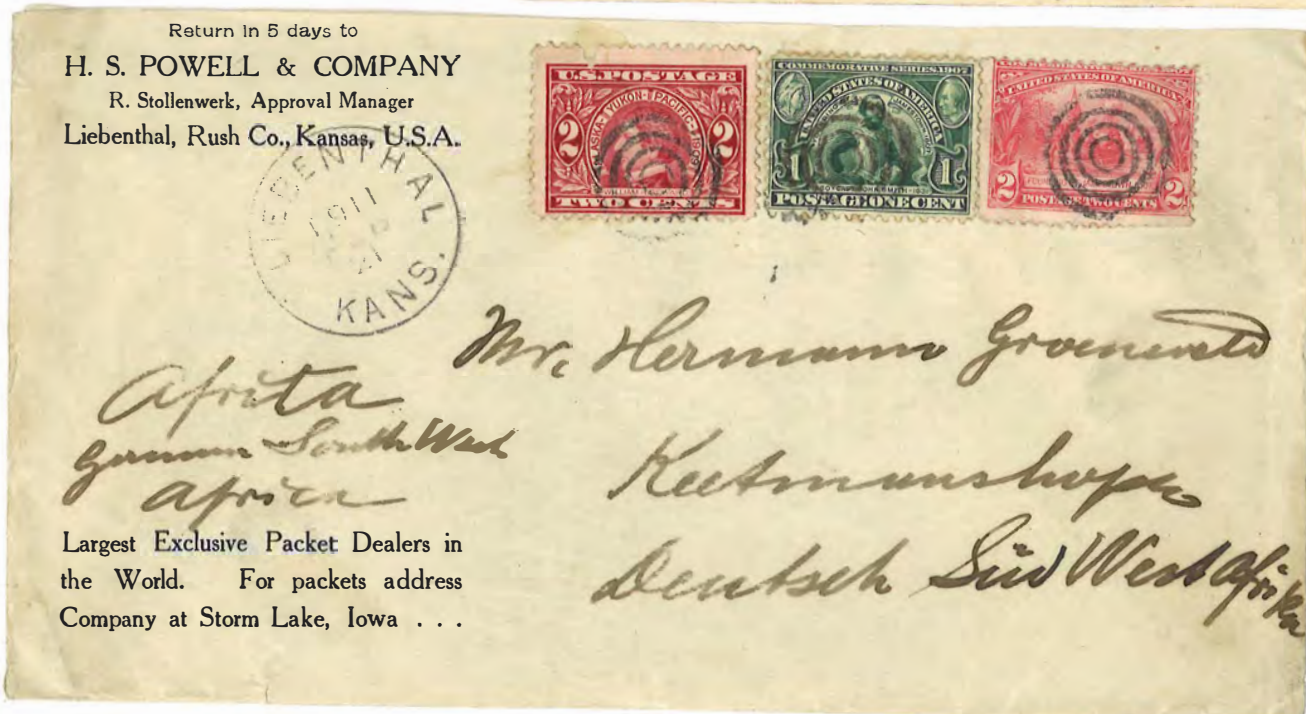 Return in 5 days to
H. S. POWELL & COMPANY
R. Stollenwerk, Approval Manager
Liebenthal, Rush Co., Kansas, U.S.A.
U.S. POSTAGE
ALASKA-YUKON-PACIFIC-1909
2 2
TWO CENTS
COMMEMORATIVE SERIES 1907
UNITED STATES OF AMERICA
1 1
POSTAGE ONE CENT
UNITED STATES OF AMERICA
2 2
POSTAGE TWO CENTS
LIEBENTHAL
1911
21
KANS.
Mr. Hermann Groenewald
Keetmanshoop
Deutsch Süd West Afrika
Afrika
German South West
Africa
Largest Exclusive Packet Dealers in
the World. For packets address
Company at Storm Lake, Iowa . . .